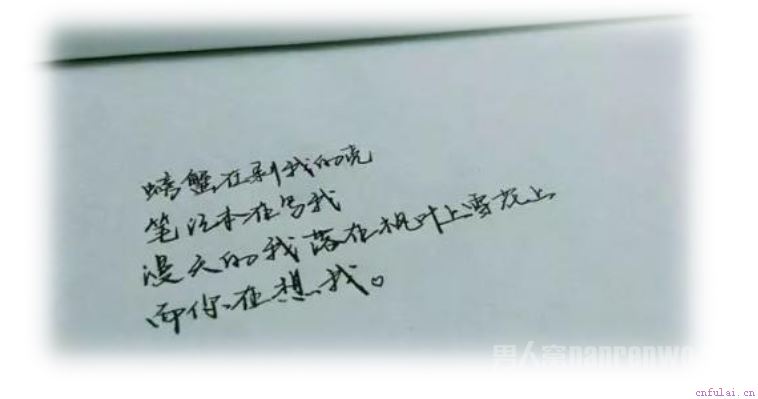 螃蟹在剥我的壳
笔记本在写我
漫天的我落在枫叶上雪花上
而你在想我。
男人窝nanrenwo
cnfulai.cn